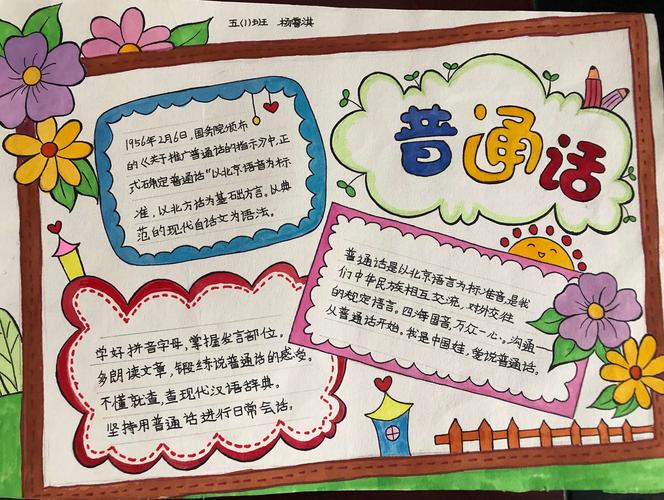 五(1)班 杨馨淇
普通话
1956年2月6日,国务院颁布
的《关于推广普通话的指示》中,正
式确定普通话"以北京语音为标
准,以北方话为基础方言。以典
范的现代白话文为语法。
普通话是以北京语言为标准音,是我
们中华民族相互交流,对外交往
的规定语言。四海国音,万众一心。沟通
从普通话开始。我是中国娃,爱说普通话。
学好拼音字母,掌握发言部位。
多朗读文章,锻练说普通话的感觉。
不懂就查,查现代汉语辞典。
坚持用普通话进行日常会话。